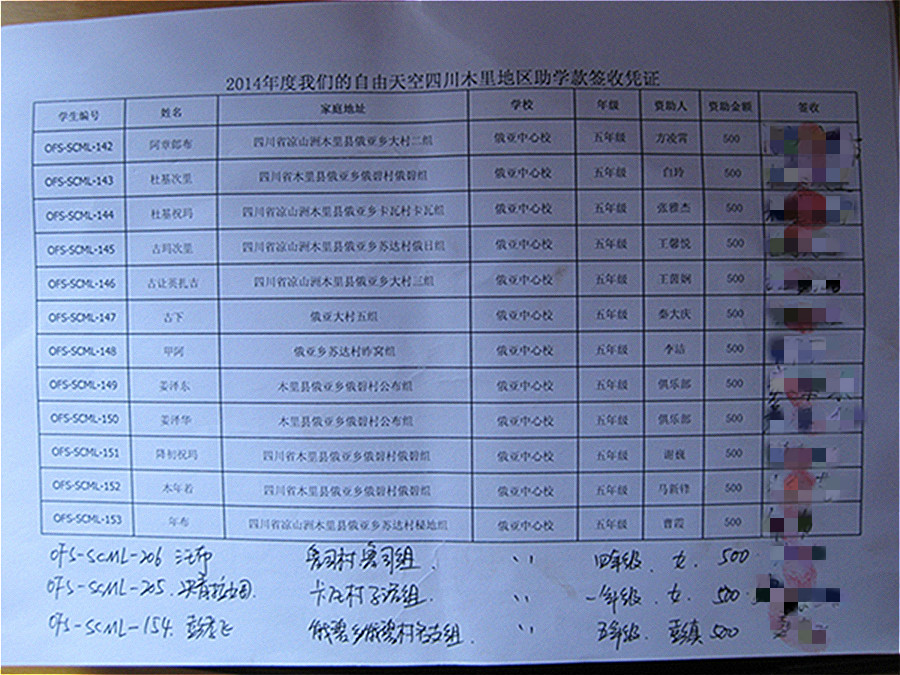 2014年度我们的自由天空四川木里地区助学款签收凭证
学生编号 姓名 家庭地址 学校 年级 资助人 资助金额 签收
OFS-SCML-142 阿章郎布 四川省凉山洲木里县俄亚乡大村二组 俄亚中心校 五年级 方凌霄 500
OFS-SCML-143 杜基次里 四川省木里县俄亚乡俄碧村俄碧组 俄亚中心校 五年级 白玲 500
OFS-SCML-144 杜基祝玛 四川省凉山洲木里县俄亚乡卡瓦村卡瓦组 俄亚中心校 五年级 张雅杰 500
OFS-SCML-145 古玛次里 四川省凉山洲木里县俄亚乡苏达村俄日组 俄亚中心校 五年级 王馨悦 500
OFS-SCML-146 古让英扎吉 四川省凉山洲木里县俄亚乡大村三组 俄亚中心校 五年级 王茵娴 500
OFS-SCML-147 古下 俄亚大村五组 俄亚中心校 五年级 秦大庆 500
OFS-SCML-148 甲阿 俄亚乡苏达村昨窝组 俄亚中心校 五年级 李洁 500
OFS-SCML-149 姜泽东 木里县俄亚乡俄碧村公布组 俄亚中心校 五年级 俱乐部 500
OFS-SCML-150 姜泽华 木里县俄亚乡俄碧村公布组 俄亚中心校 五年级 俱乐部 500
OFS-SCML-151 降初祝玛 四川省木里县俄亚乡俄碧村俄碧组 俄亚中心校 五年级 谢巍 500
OFS-SCML-152 木年若 四川省木里县俄亚乡俄碧村俄碧组 俄亚中心校 五年级 马新锋 500
OFS-SCML-153 年布 四川省凉山洲木里县俄亚乡苏达村秘地组 俄亚中心校 五年级 曹霞 500
OFS-SCML-206 鲁司村鲁司组. 四年级. 女. 500
OFS-SCML-205. 卡瓦村 组. 一年级. 女. 500
OFS-SCML-154. 俄碧乡俄碧村 组. 五年级. 彭真 500